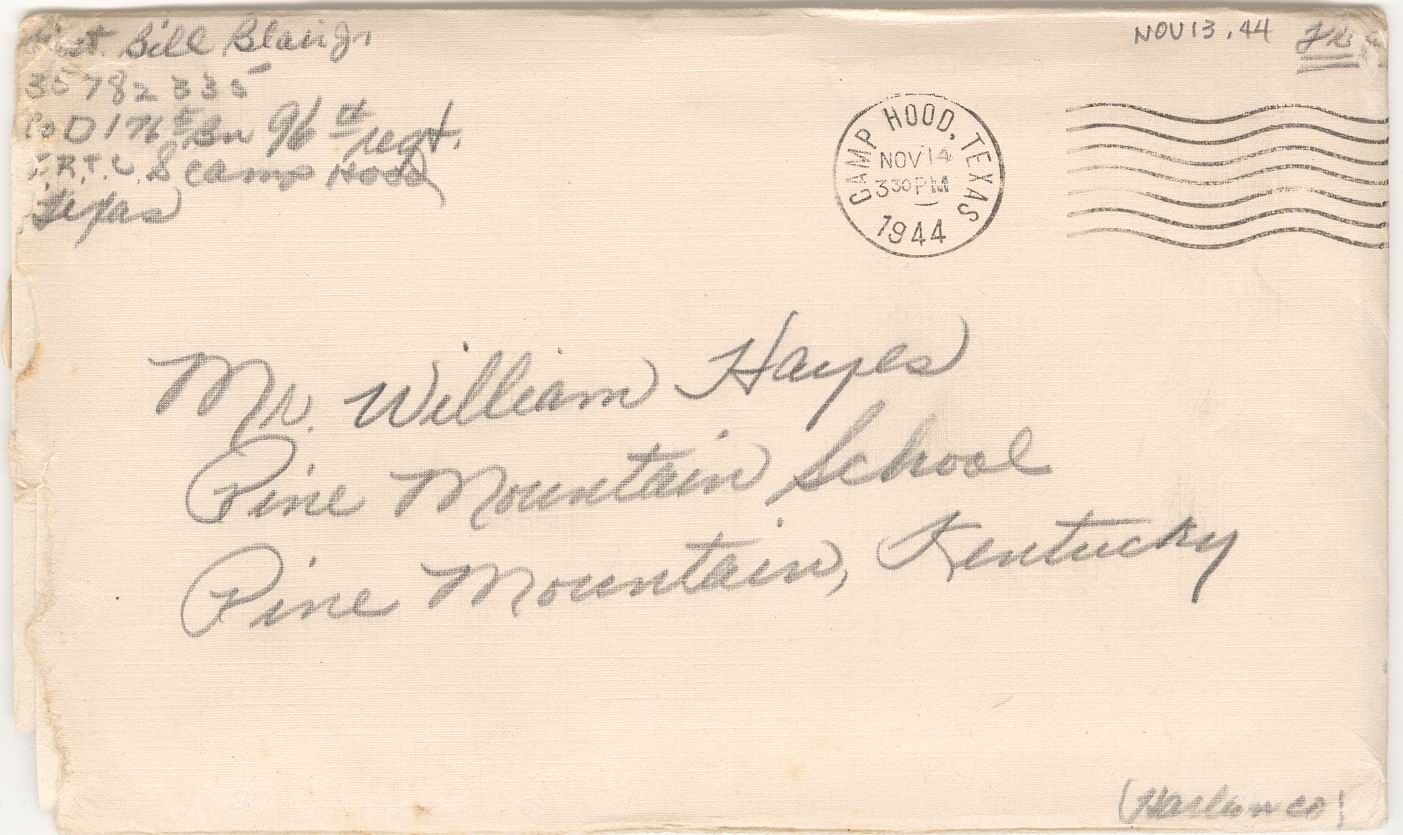 Pvt. Bill Blair Jr
35782335
Co D 176th Bn 96th regt.
I.R.T.C. S Camp Hood
Texas
NOV 13, 44
CAMP HOOD, TEXAS
NOV 14
3 30 PM
1944
Mr. William Hayes
Pine Mountain School
Pine Mountain, Kentucky
(Harlan co)